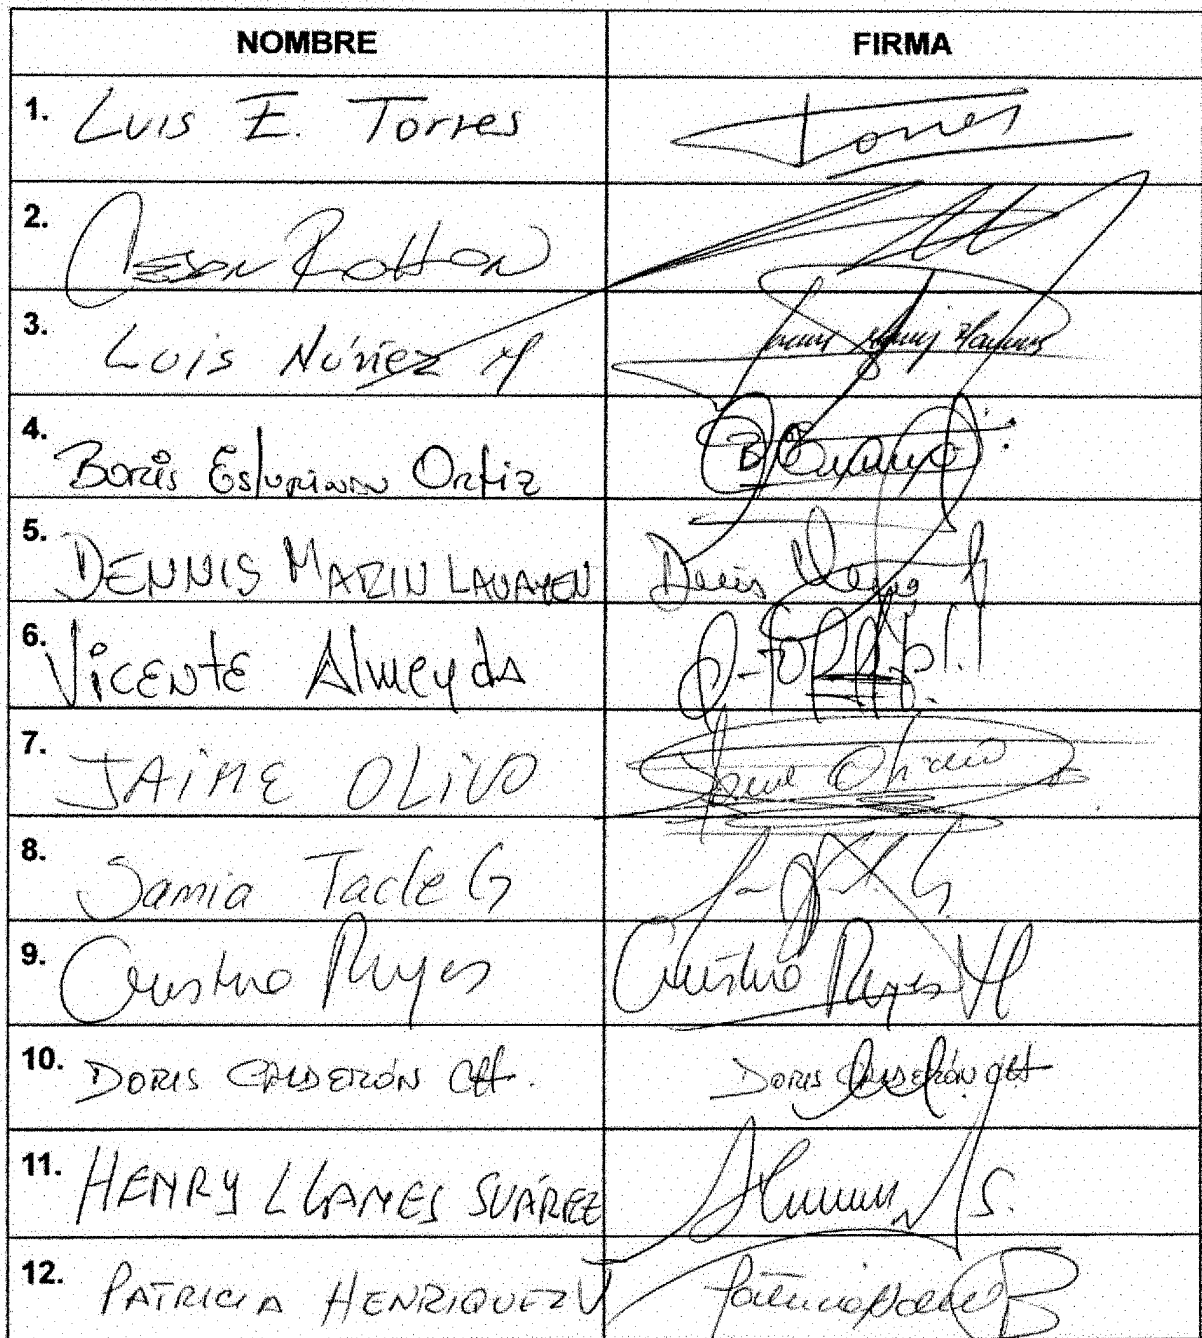 NOMBRE FIRMA
1. Luis E. Torres Torres
2. Cesar Rohon
3. Luis Núñez M
4. Boris Estupiñan Ortiz
5. DENNIS MARIN LAVAYEN
6. Vicente Almeyda
7. JAIME OLIVO Jaime Olivo
8. Samia Tacle G
9. Cristina Reyes Cristina Reyes H
10. DORIS CALDERÓN CH. DORIS CALDERÓN CH
11. HENRY LLANES SUÁREZ
12. PATRICIA HENRIQUEZ V